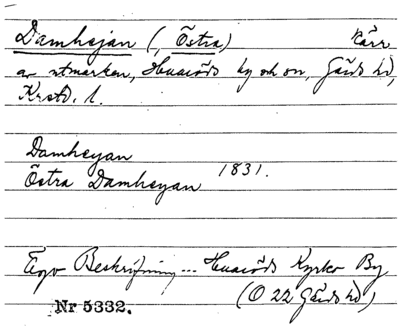 Damhejan (, Östra) Kärr
av utmarken, Huaröds by och sn, Gärds hd,
Krstd. l.
Damheyan
Östra Damheyan 1831.
Ego Beskrifning... Huaröds Kyrko By
(O 22 Gärds hd)
Nr 5332.